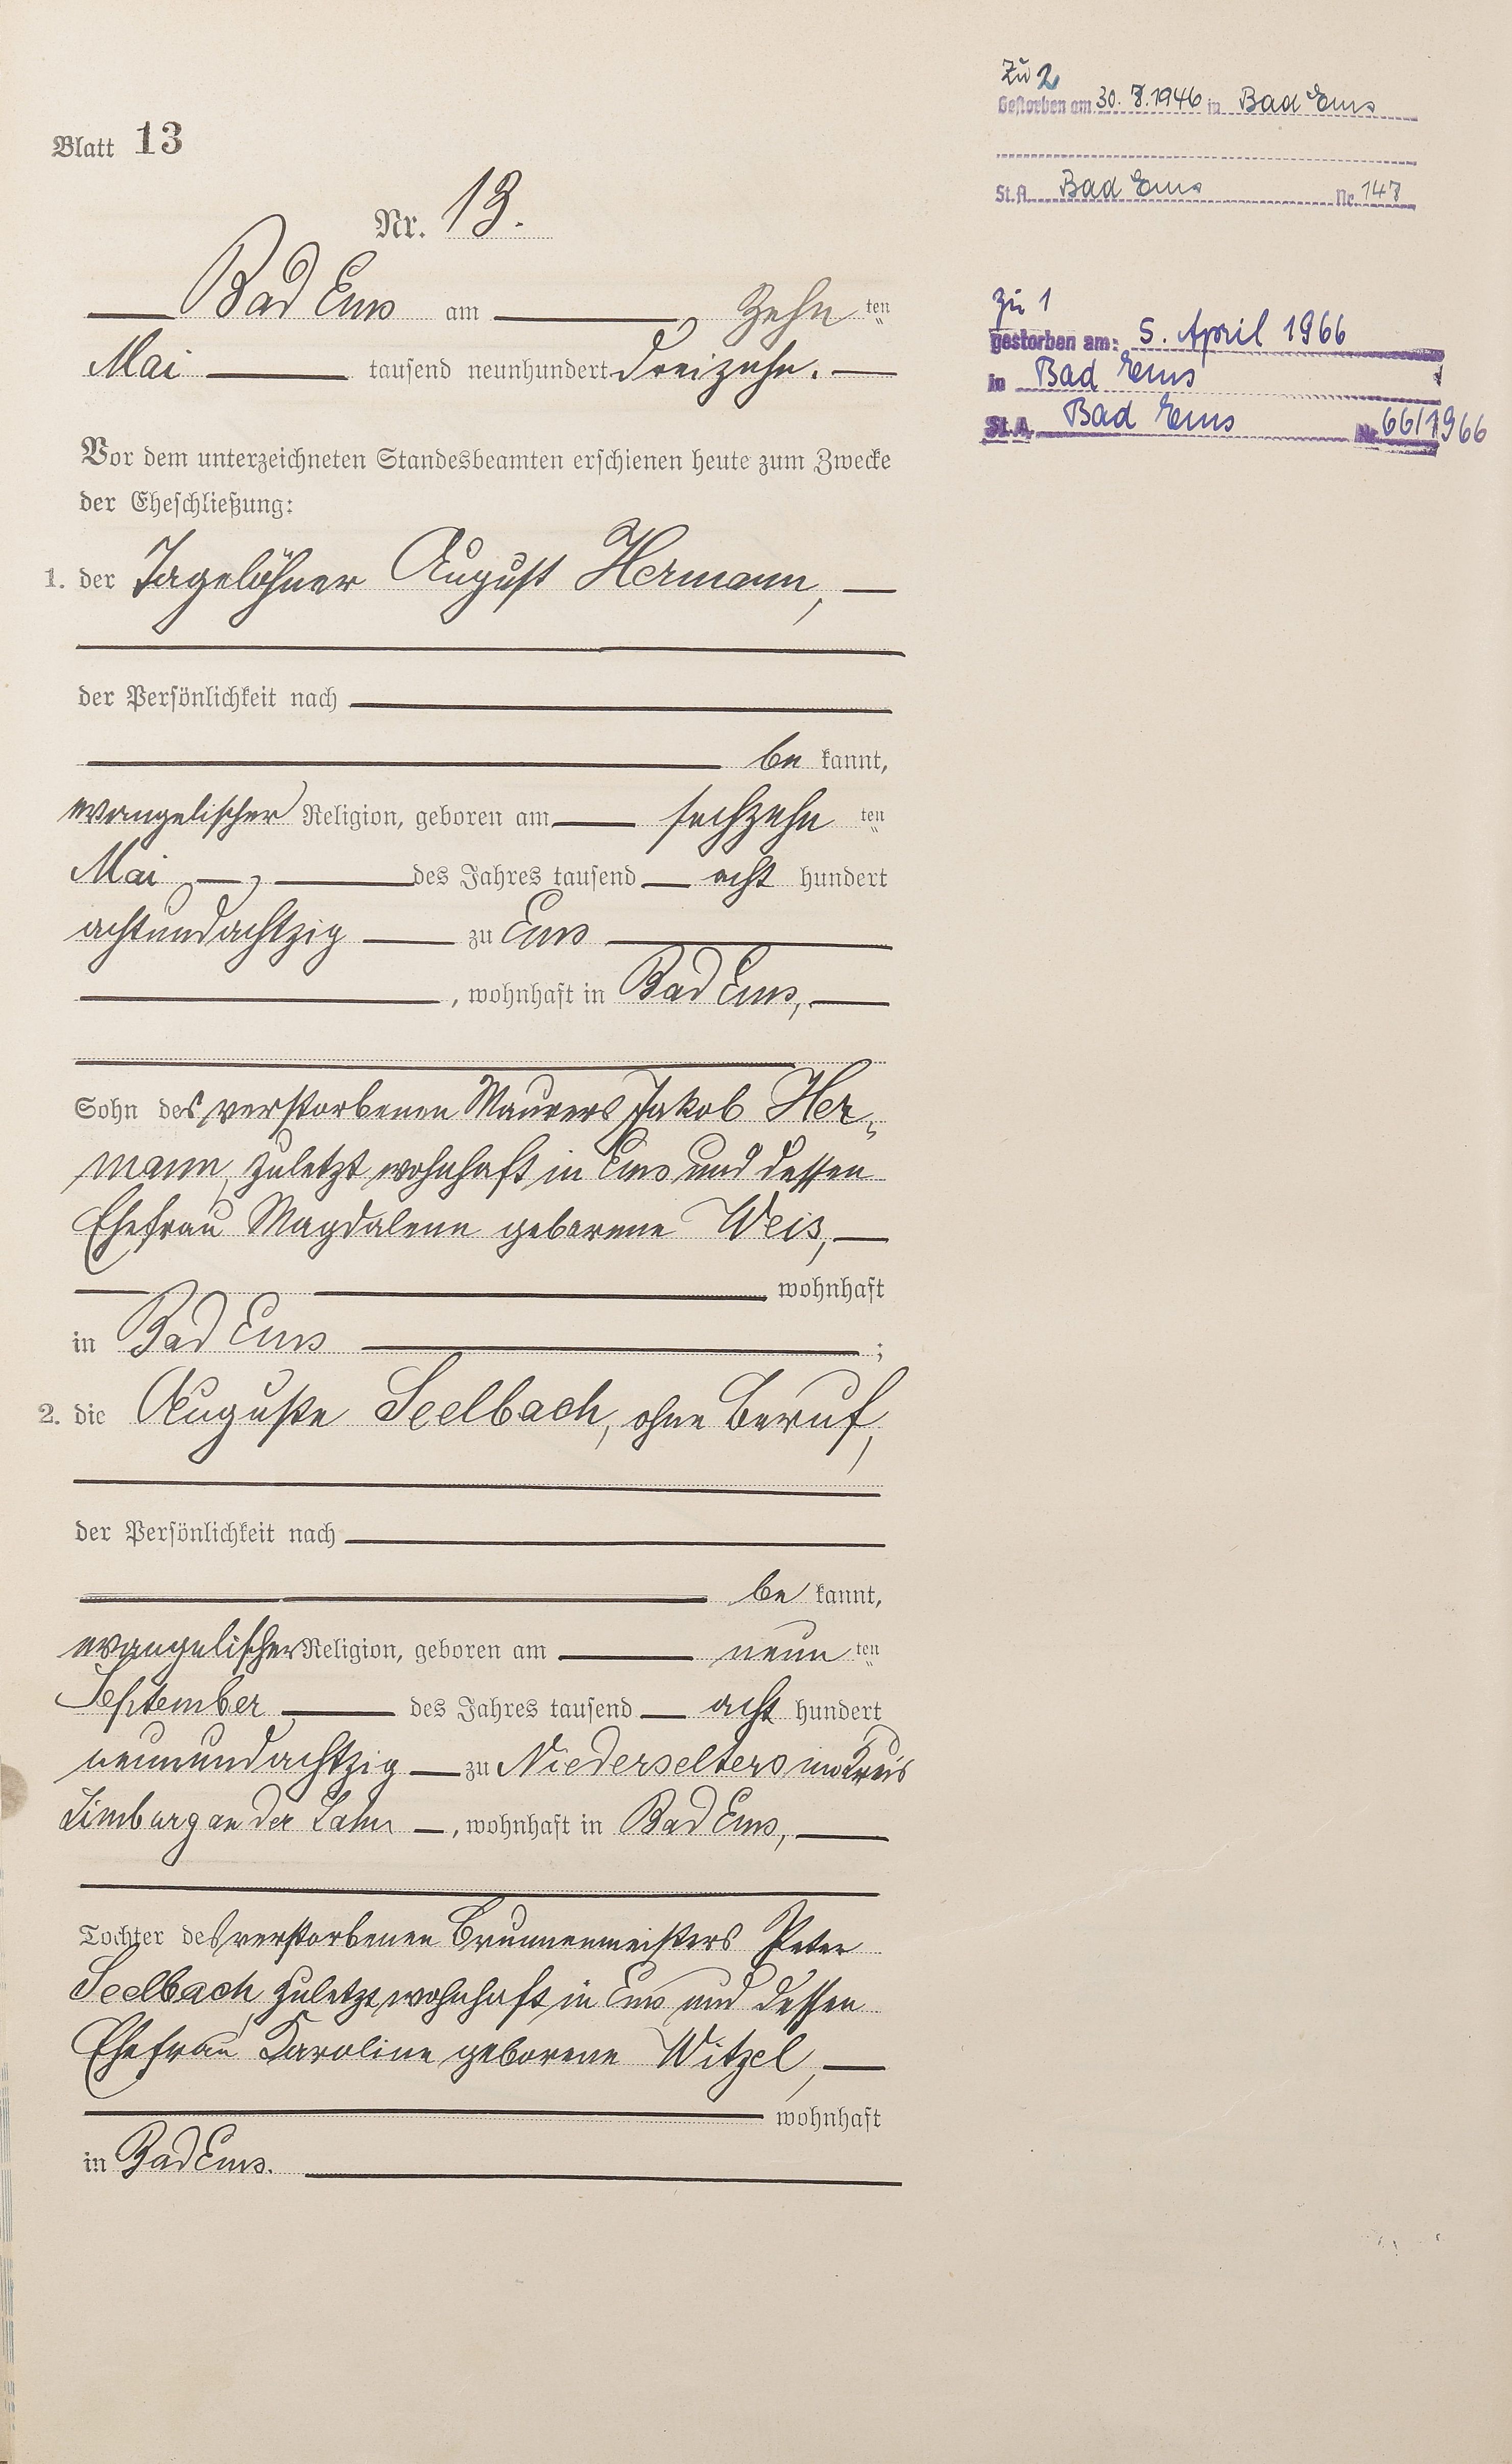 Blatt 13
Nr. 13.
Bad Ems am zehn ten
Mai tausend neunhundert dreizehn.
Vor dem unterzeichneten Standesbeamten erschienen heute zum Zwecke
der Eheschließung:
1. der Tagelöhner August Hermann,
der Persönlichkeit nach
be kannt,
evangelischer Religion, geboren am sechzehn ten
Mai des Jahres tausend acht hundert
achtundachtzig zu Ems
, wohnhaft in Bad Ems,
Sohn des verstorbenen Maurers Jakob Her-
mann, zuletzt wohnhaft in Ems und dessen
Ehefrau Magdalene geborene Weis,
wohnhaft
in Bad Ems ;
2. die Auguste Seelbach, ohne Beruf,
der Persönlichkeit nach
be kannt,
evangelischer Religion, geboren am neun ten
September des Jahres tausend acht hundert
neunundachtzig zu Niederselters im Kreis
Limburg an der Lahn , wohnhaft in Bad Ems,
Tochter des verstorbenen Brunnenmeisters Peter
Seelbach, zuletzt wohnhaft in Ems und dessen
Ehefrau Karoline geborene Witzel,
wohnhaft
in Bad Ems.
Zu 2
Gestorben am 30. 7. 1946 in Bad Ems
St.A. Bad Ems Nr. 147
Zu 1
gestorben am: 5. April 1966
in Bad Ems
St.A. Bad Ems Nr. 66/1966